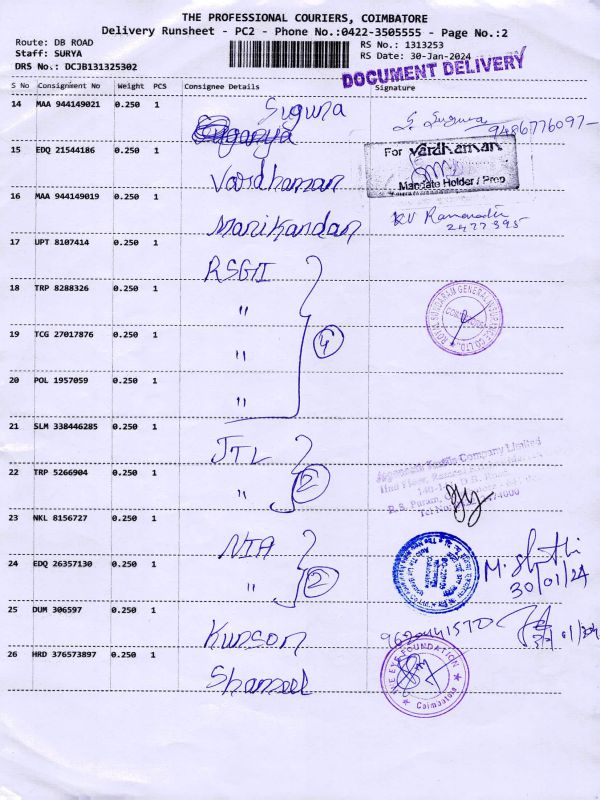 THE PROFESSIONAL COURIERS, COIMBATORE
Delivery Runsheet - PC2 - Phone No.:0422-3505555 - Page No.:2
Route: DB ROAD
Staff: SURYA
DRS No.: DCJB131325302
RS No.: 1313253
RS Date: 30-Jan-2024
DOCUMENT DELIVERY
S No Consignment No Weight PCS Consignee Details Signature
14 MAA 944149021 0.250 1 Suguna
S. Suguna 9486776097-
15 EDQ 21544186 0.250 1 Vardhaman
For Vardhaman
Mandate Holder / Prop
16 MAA 944149019 0.250 1 Manikandan
KV 2477395
17 UPT 8107414 0.250 1 RSGII
18 TRP 8288326 0.250 1 "
ROYAL SUNDARAM GENERAL INSURANCE CO LTD.
19 TCG 27017876 0.250 1 " 4
20 POL 1957059 0.250 1 "
21 SLM 338446285 0.250 1 JTL
Textile Company Limited
R.S. Puram,
22 TRP 5266904 0.250 1 " 2
23 NKL 8156727 0.250 1 NIA
24 EDQ 26357130 0.250 1 " 2
M.
30/01/24
25 DUM 306597 0.250 1 Kunson
26 HRD 376573897 0.250 1 Shameel
EYE FOUNDATION
Coimbatore